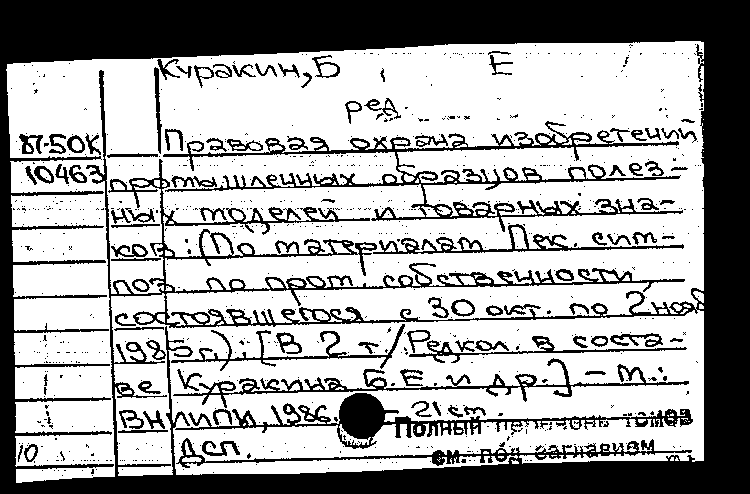 Куракин, Б Е
ред.
87-50К Правовая охрана изобретений
10463 промышленных образцов полез-
ных моделей и товарных зна-
ков: (По материалам Пек. сим-
поз. по пром. собственности
состоявшегося с 30 окт. по 2 нояб
1985г.): [В 2 т/Редкол. в соста-
ве Куракина Б.Е. и др.] - М.:
ВНИИПИ, 1986. - 21 см.
Полный перечень томов
10 ДСП.
см. под заглавием